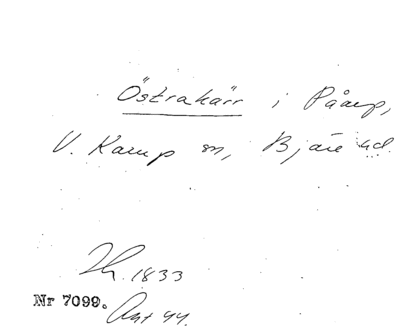 Östrakärr i Påarp,
V. Karup sn, Bjäre hd.
Th. 1833
Nr 7099. Avt 44.